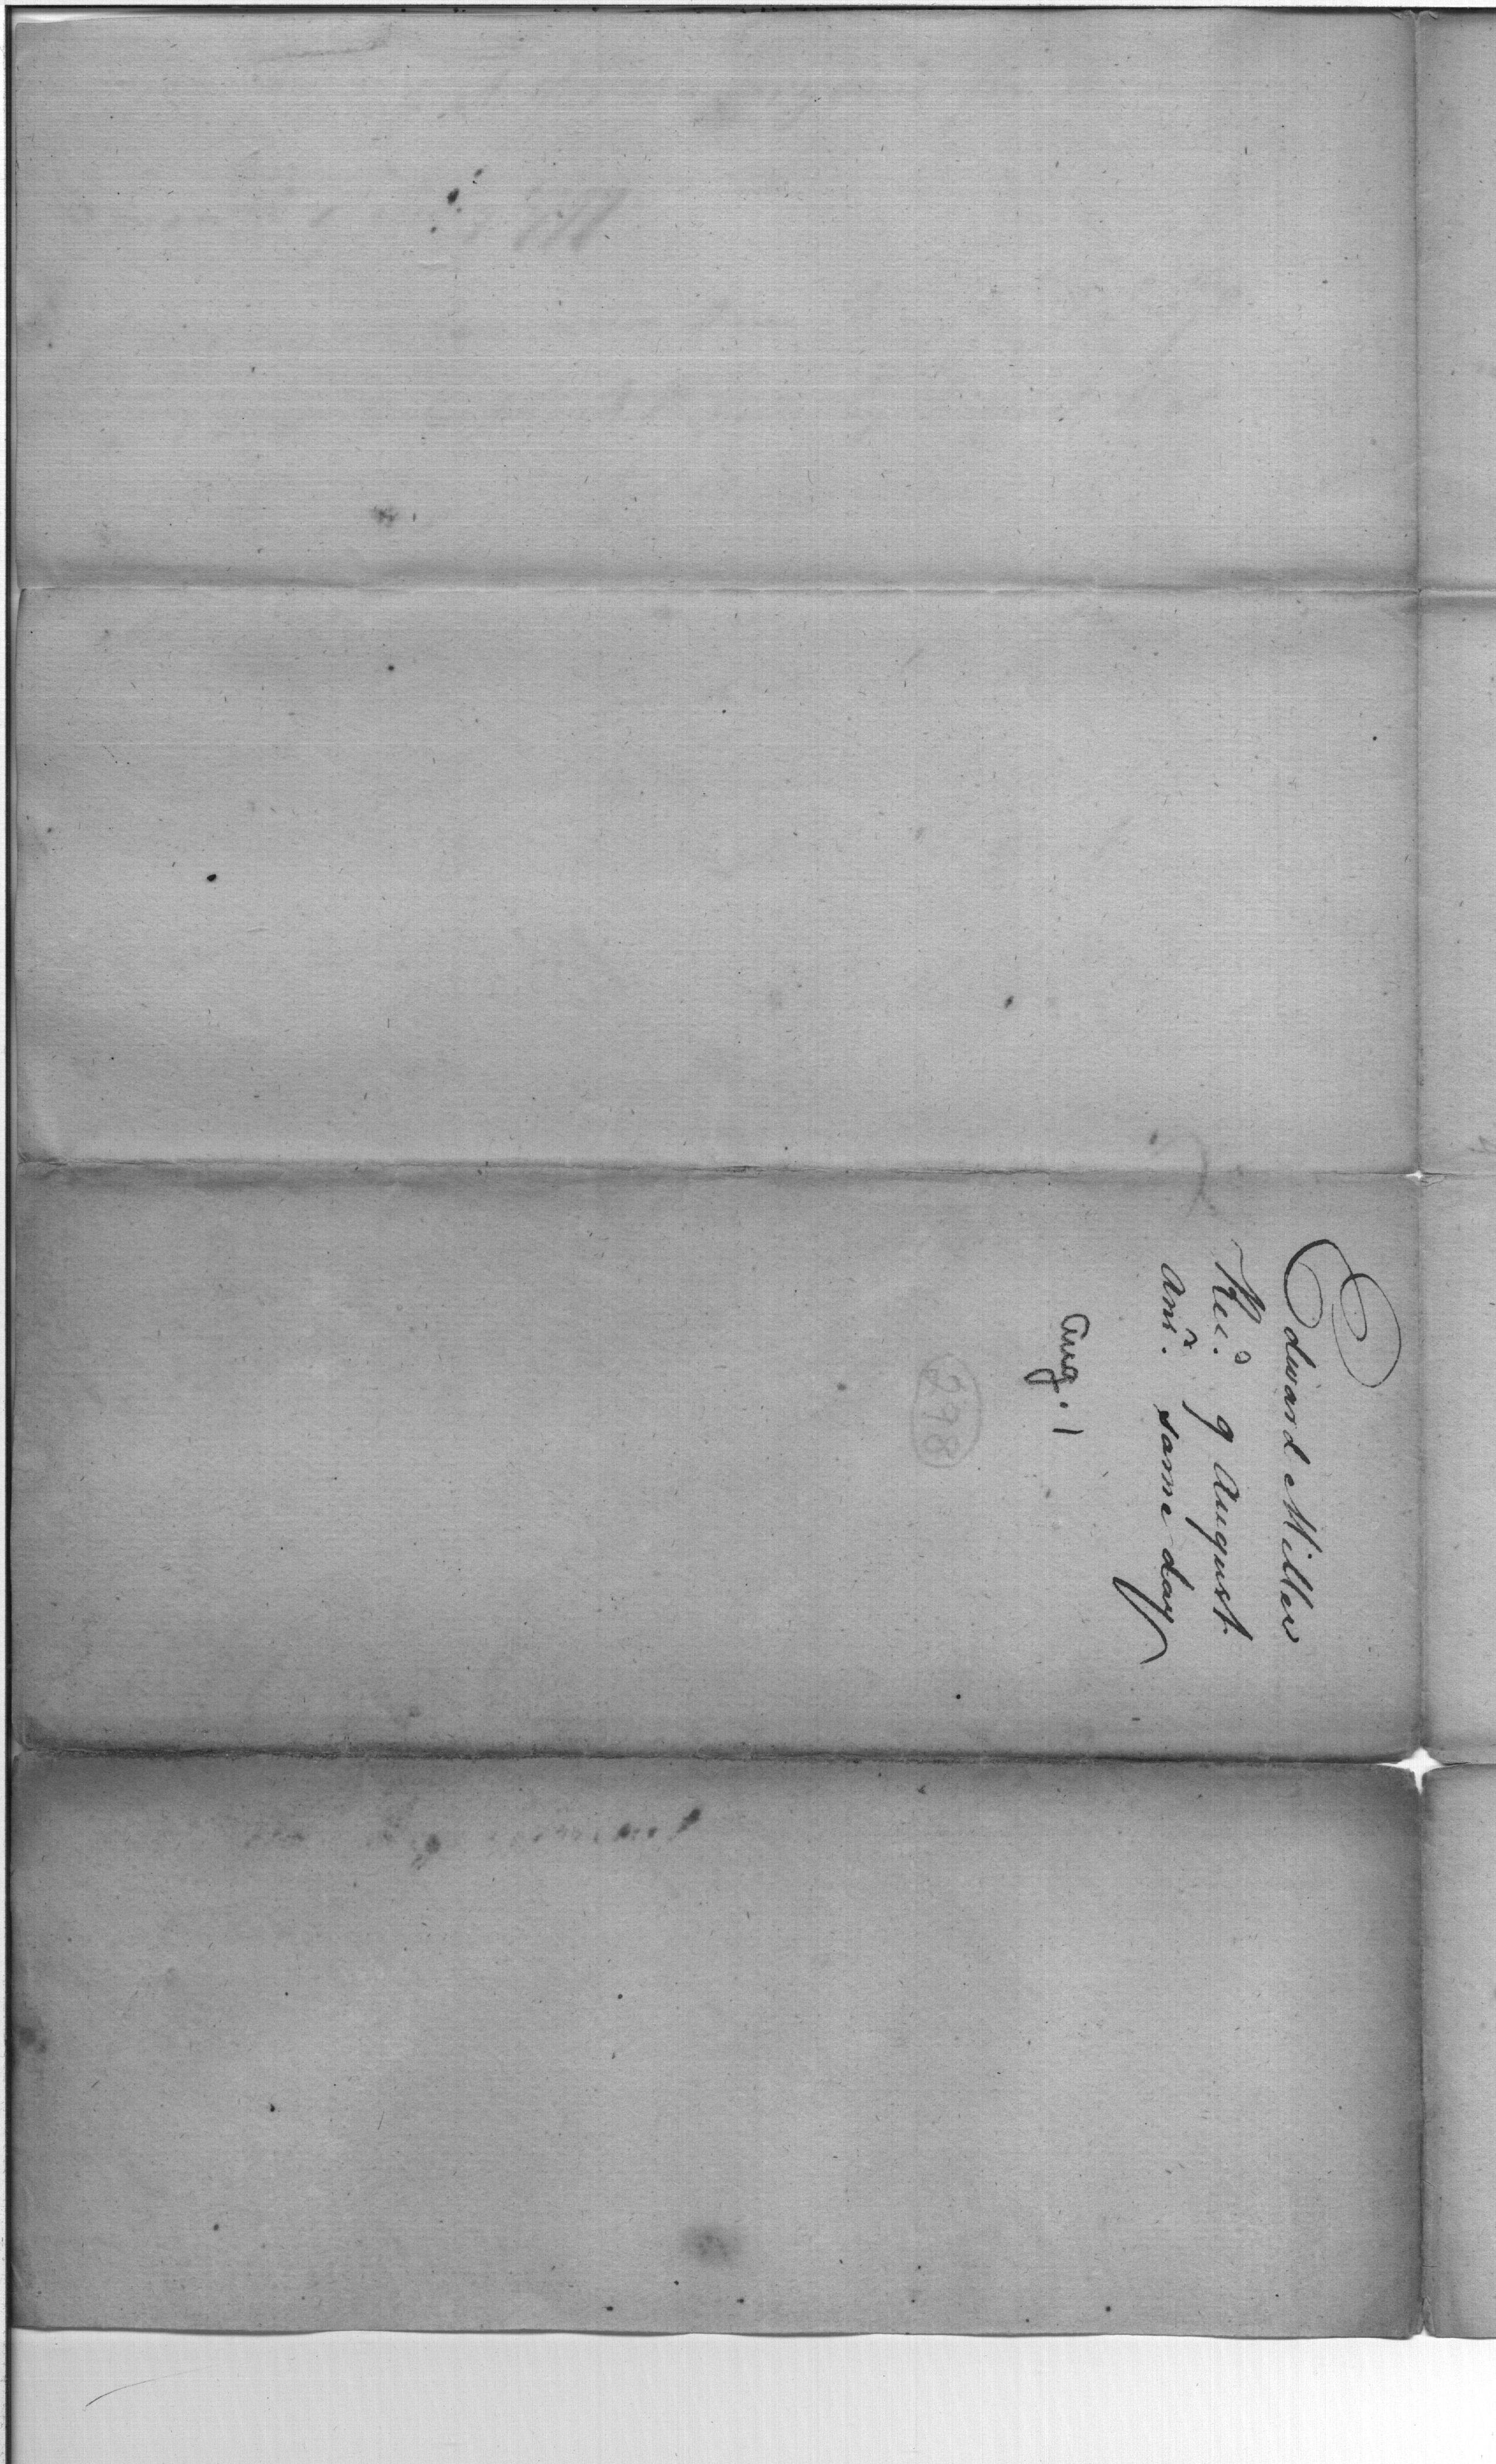 Edward Miller
Rec.d 9 August
Ans.r same day
Aug. 1
298